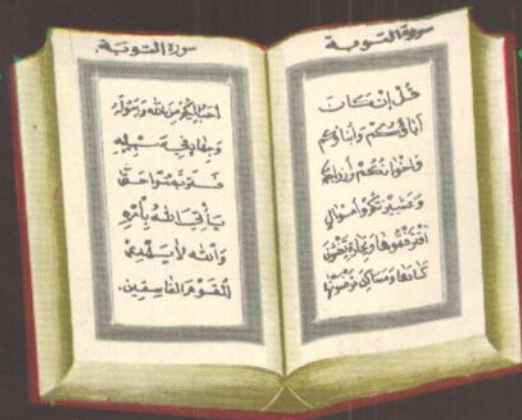 سورة التوبة
قُلْ إِنْ كَانَ
آبَاؤُكُمْ وَأَبْنَاؤُكُمْ
وَإِخْوَانُكُمْ وَأَزْوَاجُكُمْ
وَعَشِيرَتُكُمْ وَأَمْوَالٌ
اقْتَرَفْتُمُوهَا وَتِجَارَةٌ تَخْشَوْنَ
كَسَادَهَا وَمَسَاكِنُ تَرْضَوْنَهَا
سورة التوبة
أَحَبَّ إِلَيْكُمْ مِنَ اللهِ وَرَسُولِهِ
وَجِهَادٍ فِي سَبِيلِهِ
فَتَرَبَّصُوا حَتَّى
يَأْتِيَ اللهُ بِأَمْرِهِ
وَاللهُ لَا يَهْدِي
الْقَوْمَ الْفَاسِقِينَ.